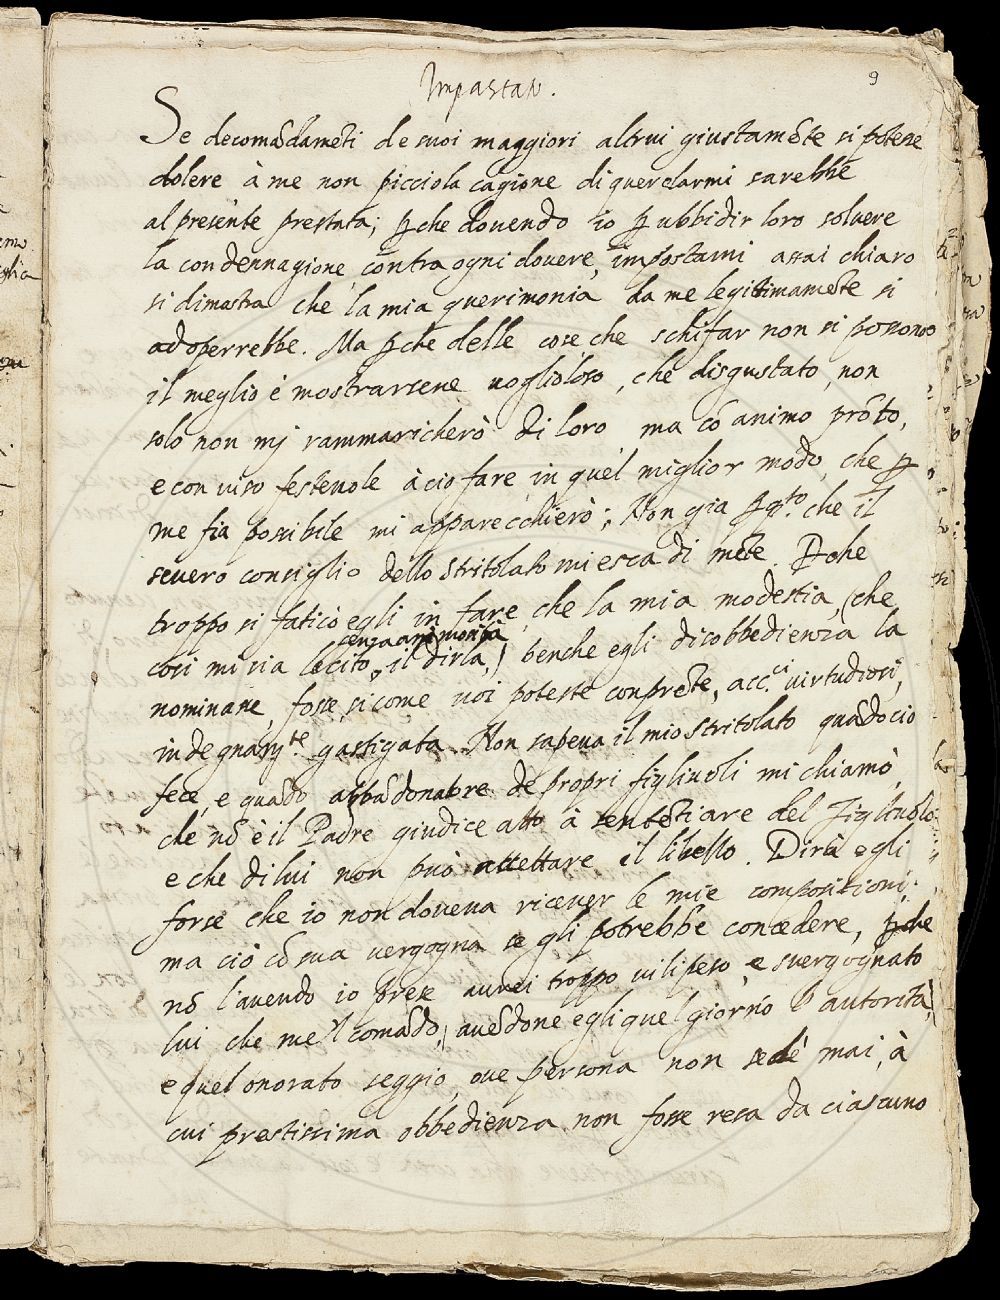 9
Se decomādamēti de suoi maggiori altrui giustamēte si potesse
dolere à me non picciola cagione di querelarmi sarebbe
al presente prestata; ꝑche dovendo io ꝑ ubbidir loro solvere
la condennagione contra ogni dovere impostami assai chiaro
si dimostra che la mia querimonia da me legittimamēte si
adoperrebbe. Ma ꝑche delle cose che schifar non si possono
il meglio è mostrarsene voglioloso, che disgustato, non
solo non mj rammaricherò di loro ma cō animo prōto,
e con viso festevole à ciò fare, in quel miglior modo che ꝑ
me fia possibile mi apparecchierò; Non gia ꝑ qto. che il
severo consiglio dello Stritolato mi esca di mēte. Pche
troppo si faticò egli in fare, che la mia modestia, (che
senza animosità
così mi sia lecito il dirla,) benche egli disobbedienza la
nominasse, fosse, si come voi poteste con prēte, acc.ci virtudiosi,
indegnamte. gastigata. Non sapeva il mio stritolato quādo ciò
fece, e quādo abbādonatore de propri figliuoli mi chiamò,
che nō è il Padre giudice atto à sentētiare del figliuolo
e che di lui non può accettare il libello. Dirà egli
forse che io non doveva ricever le mie compositioni;
ma ciò cō sua vergogna se gli potrebbe concedere, ꝑche
nō l'avendo io prese avrei troppo vilipeso, e svergognato
lui che me'l comādò, avēdone egli quel giorno l'autorità,
e quel onorato seggio, ove persona non sedè mai, à
cui prestissima obbedienza non fosse resa da ciascuno